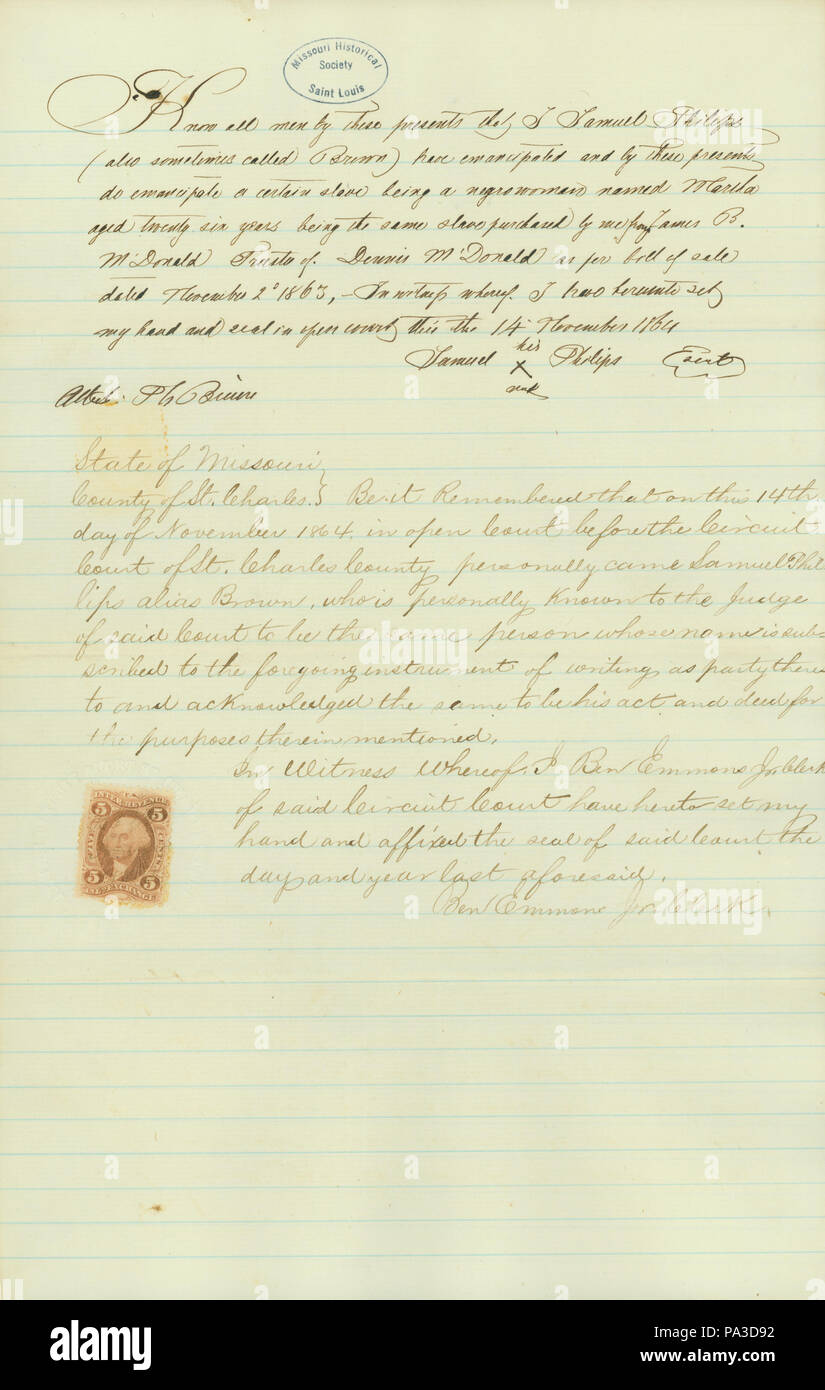 Missouri Historical
Society
Saint Louis
Know all men by these presents that I Samuel Philips
(also sometimes called Brown) have emancipated and by these presents
do emancipate a certain slave being a negrowoman named Marila
aged twenty six years being the same slave purchased by me from James B.
McDonald Trustee of Dennis McDonald as per bill of sale
dated November 2d 1863, - In witness whereof I have hereunto set
my hand and seal in open court this the 14 November 1864
Samuel his X mark Philips (Seal)
Attest.
State of Missouri }
County of St. Charles. } Be it Remembered that on this 14th
day of November 1864. in open Court before the Circuit
Court of St. Charles County personally came Samuel Phil
lips alias Brown, who is personally known to the Judge
of said Court to be the same person whose name is sub=
scribed to the foregoing instrument of writing as party there
to and acknowledged the same to be his act and deed for
the purposes therein mentioned.
In Witness Whereof I Ben Emmons Jr. Clerk
of said Circuit Court have hereto set my
hand and affixed the seal of said Court the
day and year last aforesaid.
Ben Emmons Jr. Clerk
5 INTER. REVENUE 5
FIVE CENTS
5 EXCHANGE 5
alamy
alamy
Image ID: PA3D92
www.alamy.com